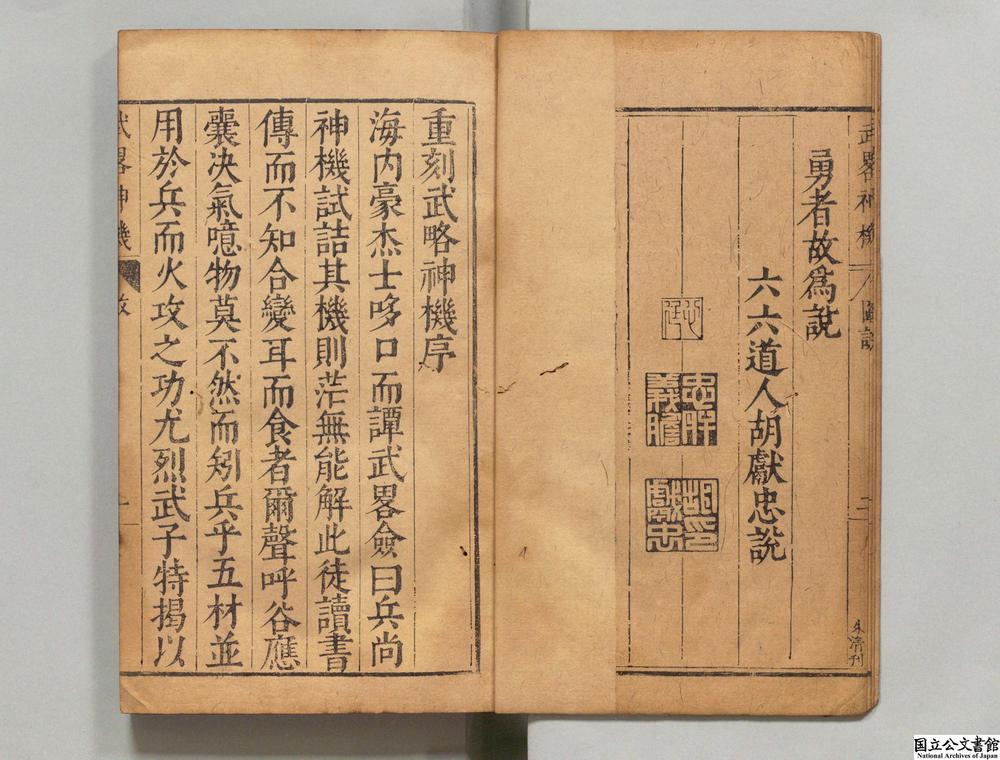 武畧神機
圖説
二
朱清刊
勇者故爲說
六六道人胡獻忠說
忠肝義膽
胡印獻忠
重刻武略神機序
海内豪杰士哆口而譚武畧僉曰兵尚
神機試詰其機則茫無能解此徒讀書
傳而不知合變耳而食者爾聲呼谷應
囊決氣噫物莫不然而矧兵乎五材並
用於兵而火攻之功尤烈武子特揭以
武畧神機
一
国立公文書館
National Archives of Japan